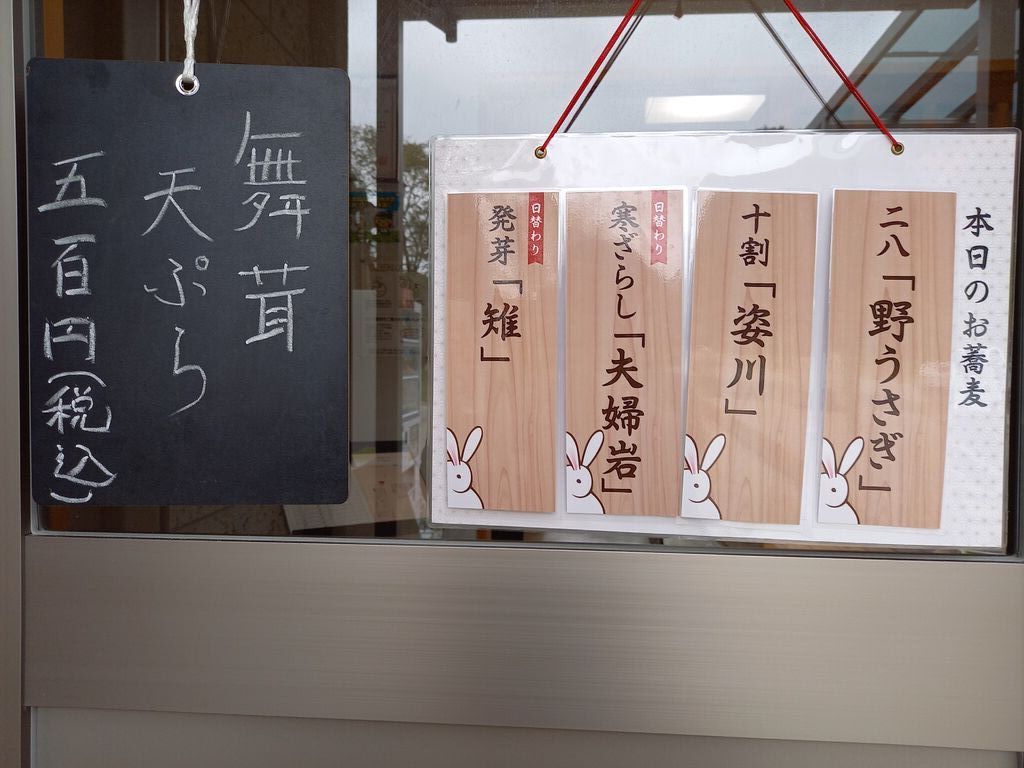 本日のお蕎麦
二八「野うさぎ」
十割「姿川」
日替わり
寒ざらし「夫婦岩」
日替わり
発芽「雉」
舞茸
天ぷら
五百円(税込)